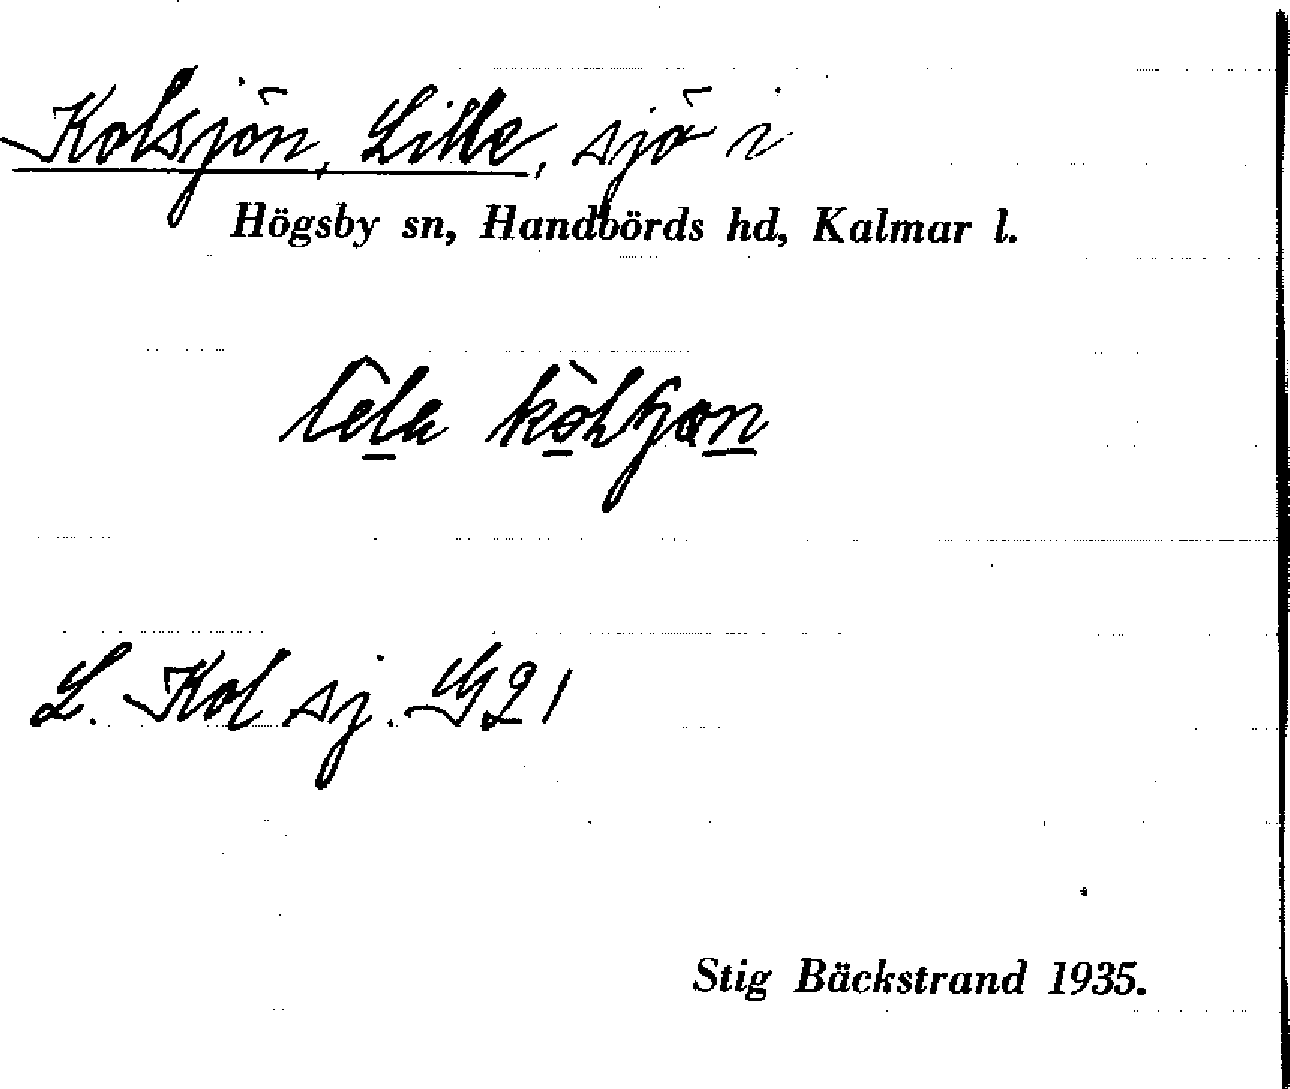 Kolsjön, Lille, sjö i
Högsby sn, Handbörds hd, Kalmar l.
L. Kol sj. G21
Stig Bäckstrand 1935.